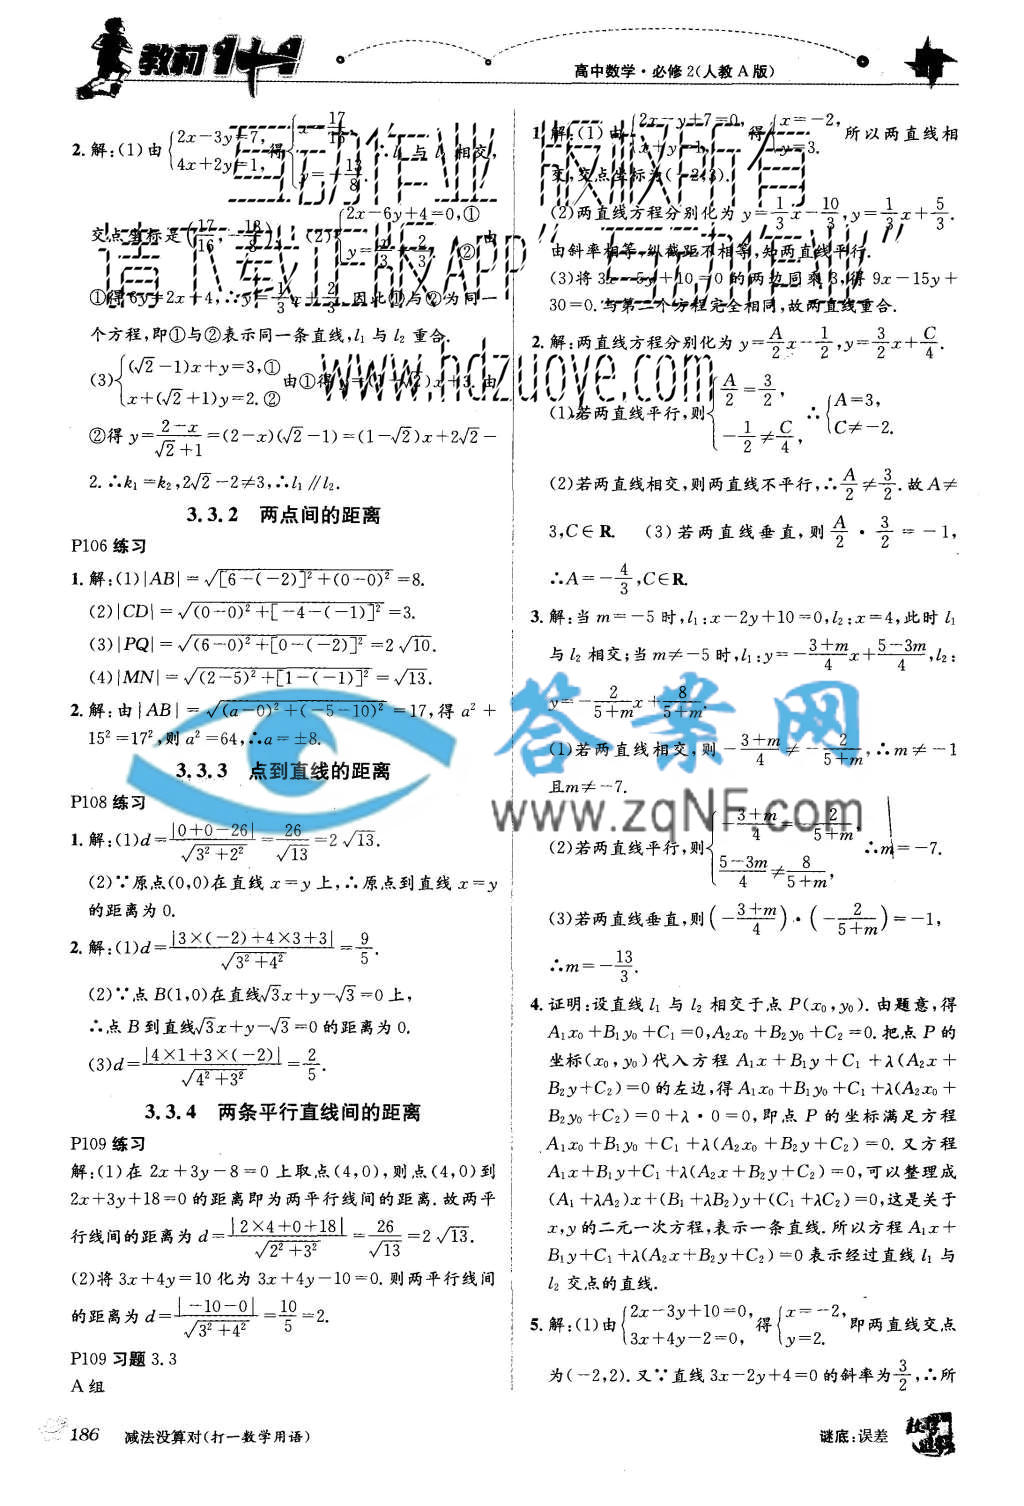 教材1+1
高中数学·必修2(人教A版)
2.解:(1)由{2x-3y=7, 4x+2y=1, 得{x=17/16, y=-13/8. ∴l₁与l₂相交,
交点坐标是(17/16,-13/8). (2){2x-6y+4=0,① y=x/3+2/3. ② 由
①得6y=2x+4,∴y=1/3x+2/3.因此①与②为同一
个方程,即①与②表示同一条直线,l₁与l₂重合.
(3){(√2-1)x+y=3,① x+(√2+1)y=2.② 由①得y=(1-√2)x+3.由
②得y=(2-x)/(√2+1)=(2-x)(√2-1)=(1-√2)x+2√2-
2.∴k₁=k₂,2√2-2≠3,∴l₁∥l₂.
3.3.2 两点间的距离
P106练习
1.解:(1)|AB|=√([6-(-2)]²+(0-0)²)=8.
(2)|CD|=√((0-0)²+[-4-(-1)]²)=3.
(3)|PQ|=√((6-0)²+[0-(-2)]²)=2√10.
(4)|MN|=√((2-5)²+[1-(-1)]²)=√13.
2.解:由|AB|=√((a-0)²+(-5-10)²)=17,得a²+
15²=17²,则a²=64,∴a=±8.
3.3.3 点到直线的距离
P108练习
1.解:(1)d=|0+0-26|/√(3²+2²)=26/√13=2√13.
(2)∵原点(0,0)在直线x=y上,∴原点到直线x=y
的距离为0.
2.解:(1)d=|3×(-2)+4×3+3|/√(3²+4²)=9/5.
(2)∵点B(1,0)在直线√3x+y-√3=0上,
∴点B到直线√3x+y-√3=0的距离为0.
(3)d=|4×1+3×(-2)|/√(4²+3²)=2/5.
3.3.4 两条平行直线间的距离
P109练习
解:(1)在2x+3y-8=0上取点(4,0),则点(4,0)到
2x+3y+18=0的距离即为两平行线间的距离.故两平
行线间的距离为d=|2×4+0+18|/√(2²+3²)=26/√13=2√13.
(2)将3x+4y=10化为3x+4y-10=0.则两平行线间
的距离为d=|-10-0|/√(3²+4²)=10/5=2.
P109习题3.3
A组
1.解:(1)由{2x-y+7=0, x+y=1, 得{x=-2, y=3. 所以两直线相
交,交点坐标为(-2,3).
(2)两直线方程分别化为y=1/3x-10/3,y=1/3x+5/3.
由斜率相等,纵截距不相等,知两直线平行.
(3)将3x-5y+10=0的两边同乘3,得9x-15y+
30=0.与第二个方程完全相同,故两直线重合.
2.解:两直线方程分别化为y=A/2x-1/2,y=3/2x+C/4.
(1)若两直线平行,则{A/2=3/2, -1/2≠C/4, ∴{A=3, C≠-2.
(2)若两直线相交,则两直线不平行,∴A/2≠3/2.故A≠
3,C∈R. (3)若两直线垂直,则A/2·3/2=-1,
∴A=-4/3,C∈R.
3.解:当m=-5时,l₁:x-2y+10=0,l₂:x=4,此时l₁
与l₂相交;当m≠-5时,l₁:y=-(3+m)/4x+(5-3m)/4,l₂:
y=-2/(5+m)x+8/(5+m).
(1)若两直线相交,则-(3+m)/4≠-2/(5+m),∴m≠-1
且m≠-7.
(2)若两直线平行,则{-(3+m)/4=-2/(5+m), (5-3m)/4≠8/(5+m), ∴m=-7.
(3)若两直线垂直,则(-(3+m)/4)·(-2/(5+m))=-1,
∴m=-13/3.
4.证明:设直线l₁与l₂相交于点P(x₀,y₀).由题意,得
A₁x₀+B₁y₀+C₁=0,A₂x₀+B₂y₀+C₂=0.把点P的
坐标(x₀,y₀)代入方程A₁x+B₁y+C₁+λ(A₂x+
B₂y+C₂)=0的左边,得A₁x₀+B₁y₀+C₁+λ(A₂x₀+
B₂y₀+C₂)=0+λ·0=0,即点P的坐标满足方程
A₁x₀+B₁y₀+C₁+λ(A₂x₀+B₂y+C₂)=0.又方程
A₁x+B₁y+C₁+λ(A₂x+B₂y+C₂)=0,可以整理成
(A₁+λA₂)x+(B₁+λB₂)y+(C₁+λC₂)=0,这是关于
x,y的二元一次方程,表示一条直线.所以方程A₁x+
B₁y+C₁+λ(A₂x+B₂y+C₂)=0表示经过直线l₁与
l₂交点的直线.
5.解:(1)由{2x-3y+10=0, 3x+4y-2=0, 得{x=-2, y=2. 即两直线交点
为(-2,2).又∵直线3x-2y+4=0的斜率为3/2,∴所
186 减法没算对(打一数学用语)
谜底:误差
互动作业 版权所有
请下载正版APP“互动作业”
www.hdzuoye.com
答案网
www.zqNF.com